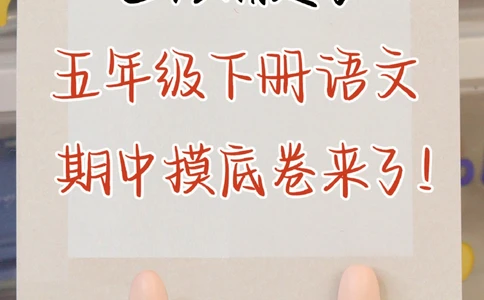 五年级下册语文
期中摸底卷来了!